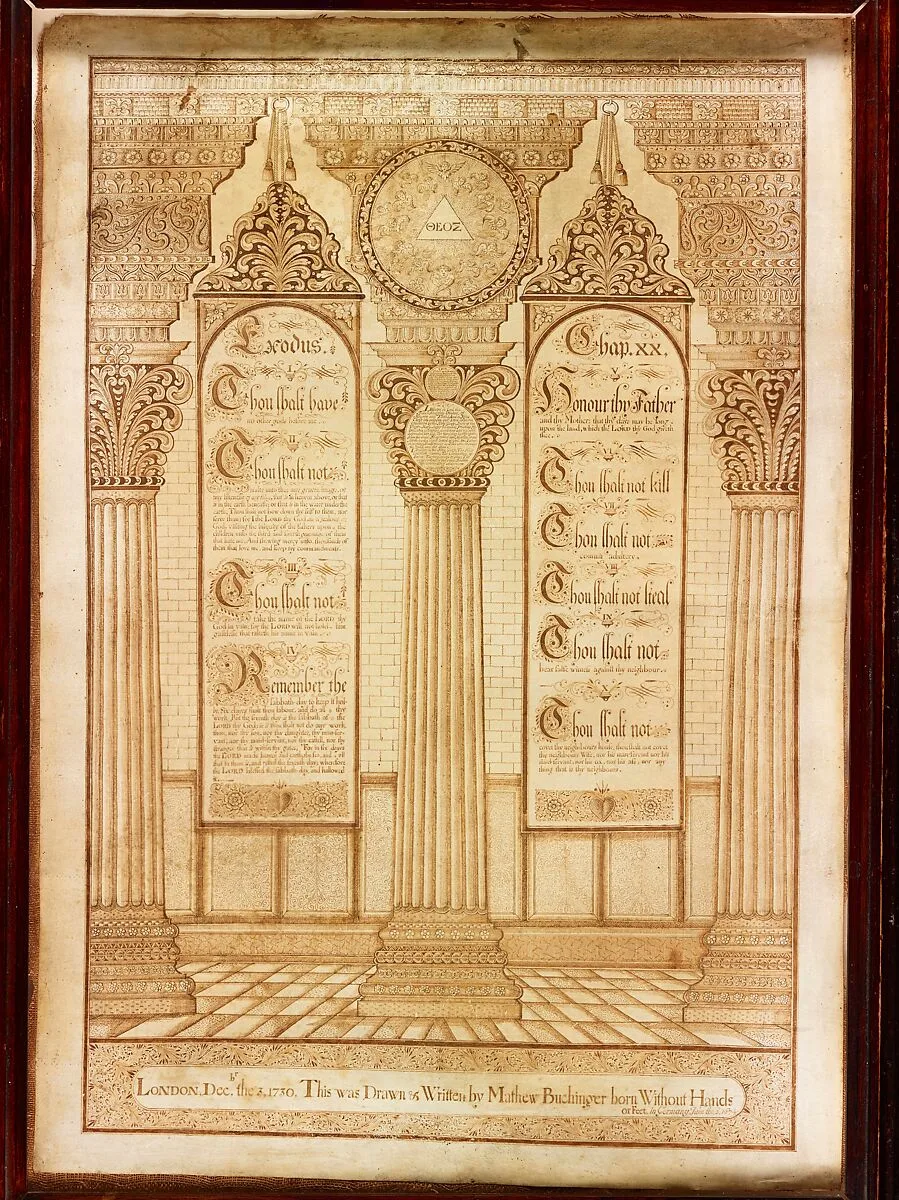 ΘΕΟΣ
Exodus.
I
Thou shalt have
no other gods before me
II
Thou shalt not
make unto thee any graven image, or
any likeness of any thing, that is in heaven above, or that
is in the earth beneath, or that is in the water under the
earth. Thou shalt not bow down thy self to them, nor
serve them: for I the LORD thy God am a jealous
God, visiting the iniquity of the fathers upon the
children unto the third and fourth generation of them
that hate me. And shewing mercy unto thousands of
them that love me, and keep my commandments.
III
Thou shalt not
take the name of the LORD thy
God in vain: for the LORD will not hold him
guiltless that taketh his name in vain
IV
Remember the
sabbath-day to keep it holy.
Six dayes shalt thou labour, and do all thy
work. But the seventh day is the sabbath of the
LORD thy God: in it thou shalt not do any work,
thou, nor thy son, nor thy daughter, thy man-servant,
nor thy maid-servant, nor thy cattel, nor thy
stranger that is within thy gates. For in six dayes
the LORD made heaven and earth, the sea, and all
that in them is, and rested the seventh day; wherefore
the LORD blessed the sabbath-day, and hallowed
Chap. XX.
V
Honour thy Father
and thy Mother: that thy dayes may be long
upon the land, which the LORD thy God giveth
thee.
Thou shalt not kill
VII
Thou shalt not
commit adultery.
VIII
Thou shalt not steal
IX
Thou shalt not
bear false witness against thy neighbour.
Thou shalt not
covet thy neighbours house, thou shalt not covet
thy neighbours Wife, nor his man-servant nor his
maid-servant, nor his ox, nor his ass, nor any
thing that is thy neighbours.
LONDON. Decbr. the 3, 1730. This was Drawn & Written by Mathew Buchinger born Without Hands
or Feet. in Germany June the